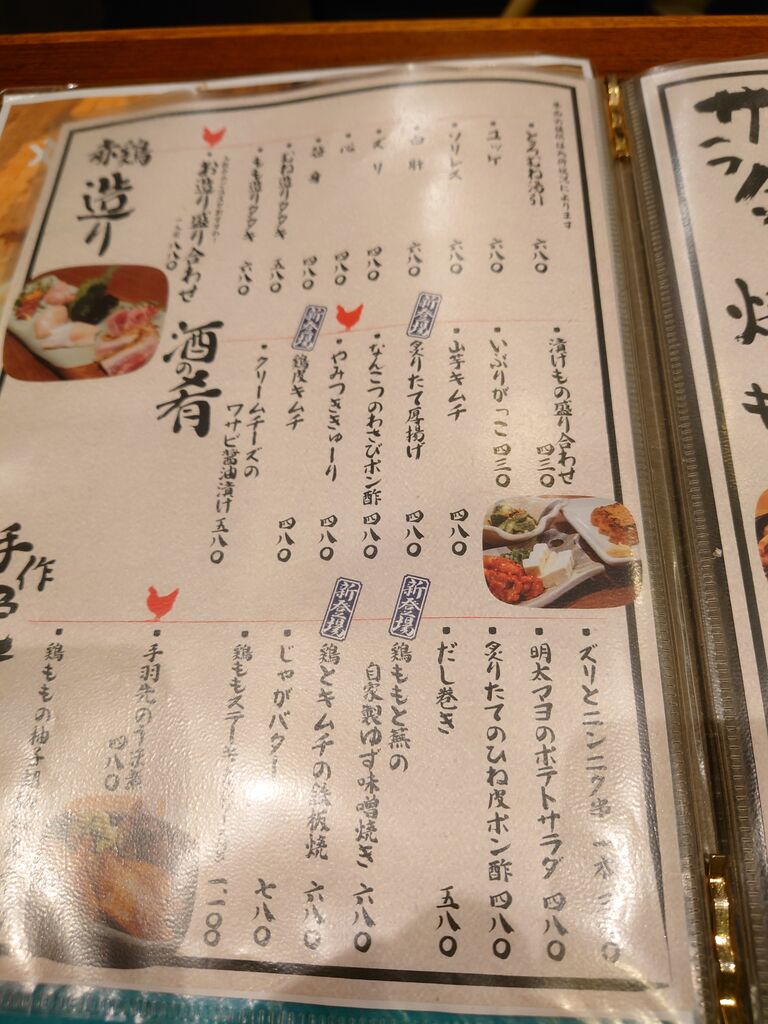 赤鶏
造り
お造り盛り合わせ
もも造りタタキ 六八〇
むね造りタタキ 五八〇
四八〇
心 四八〇
ズリ 四八〇
白肝 六八〇
ソリレス 六八〇
ユッケ 六八〇
とろむね湯引 六八〇
酒の肴
クリームチーズの
ワサビ醤油漬け 五八〇
新登場
鶏皮キムチ 四八〇
やみつききゅーり 四八〇
なんこつのわさびポン酢 四八〇
新登場
炙りたて厚揚げ 四八〇
山芋キムチ 四八〇
いぶりがっこ 四三〇
漬けもの盛り合わせ 四三〇
手作
鶏ももの柚子
手羽先のうま煮 四八〇
鶏ももステーキ 一、一〇〇
じゃがバター 七八〇
新登場
鶏とキムチの鉄板焼 六八〇
新登場
鶏ももと蕪の
自家製ゆず味噌焼き 六八〇
だし巻き 五八〇
炙りたてのひね皮ポン酢 四八〇
明太マヨのポテトサラダ 四八〇
ズリとニンニク串
サラダ
焼